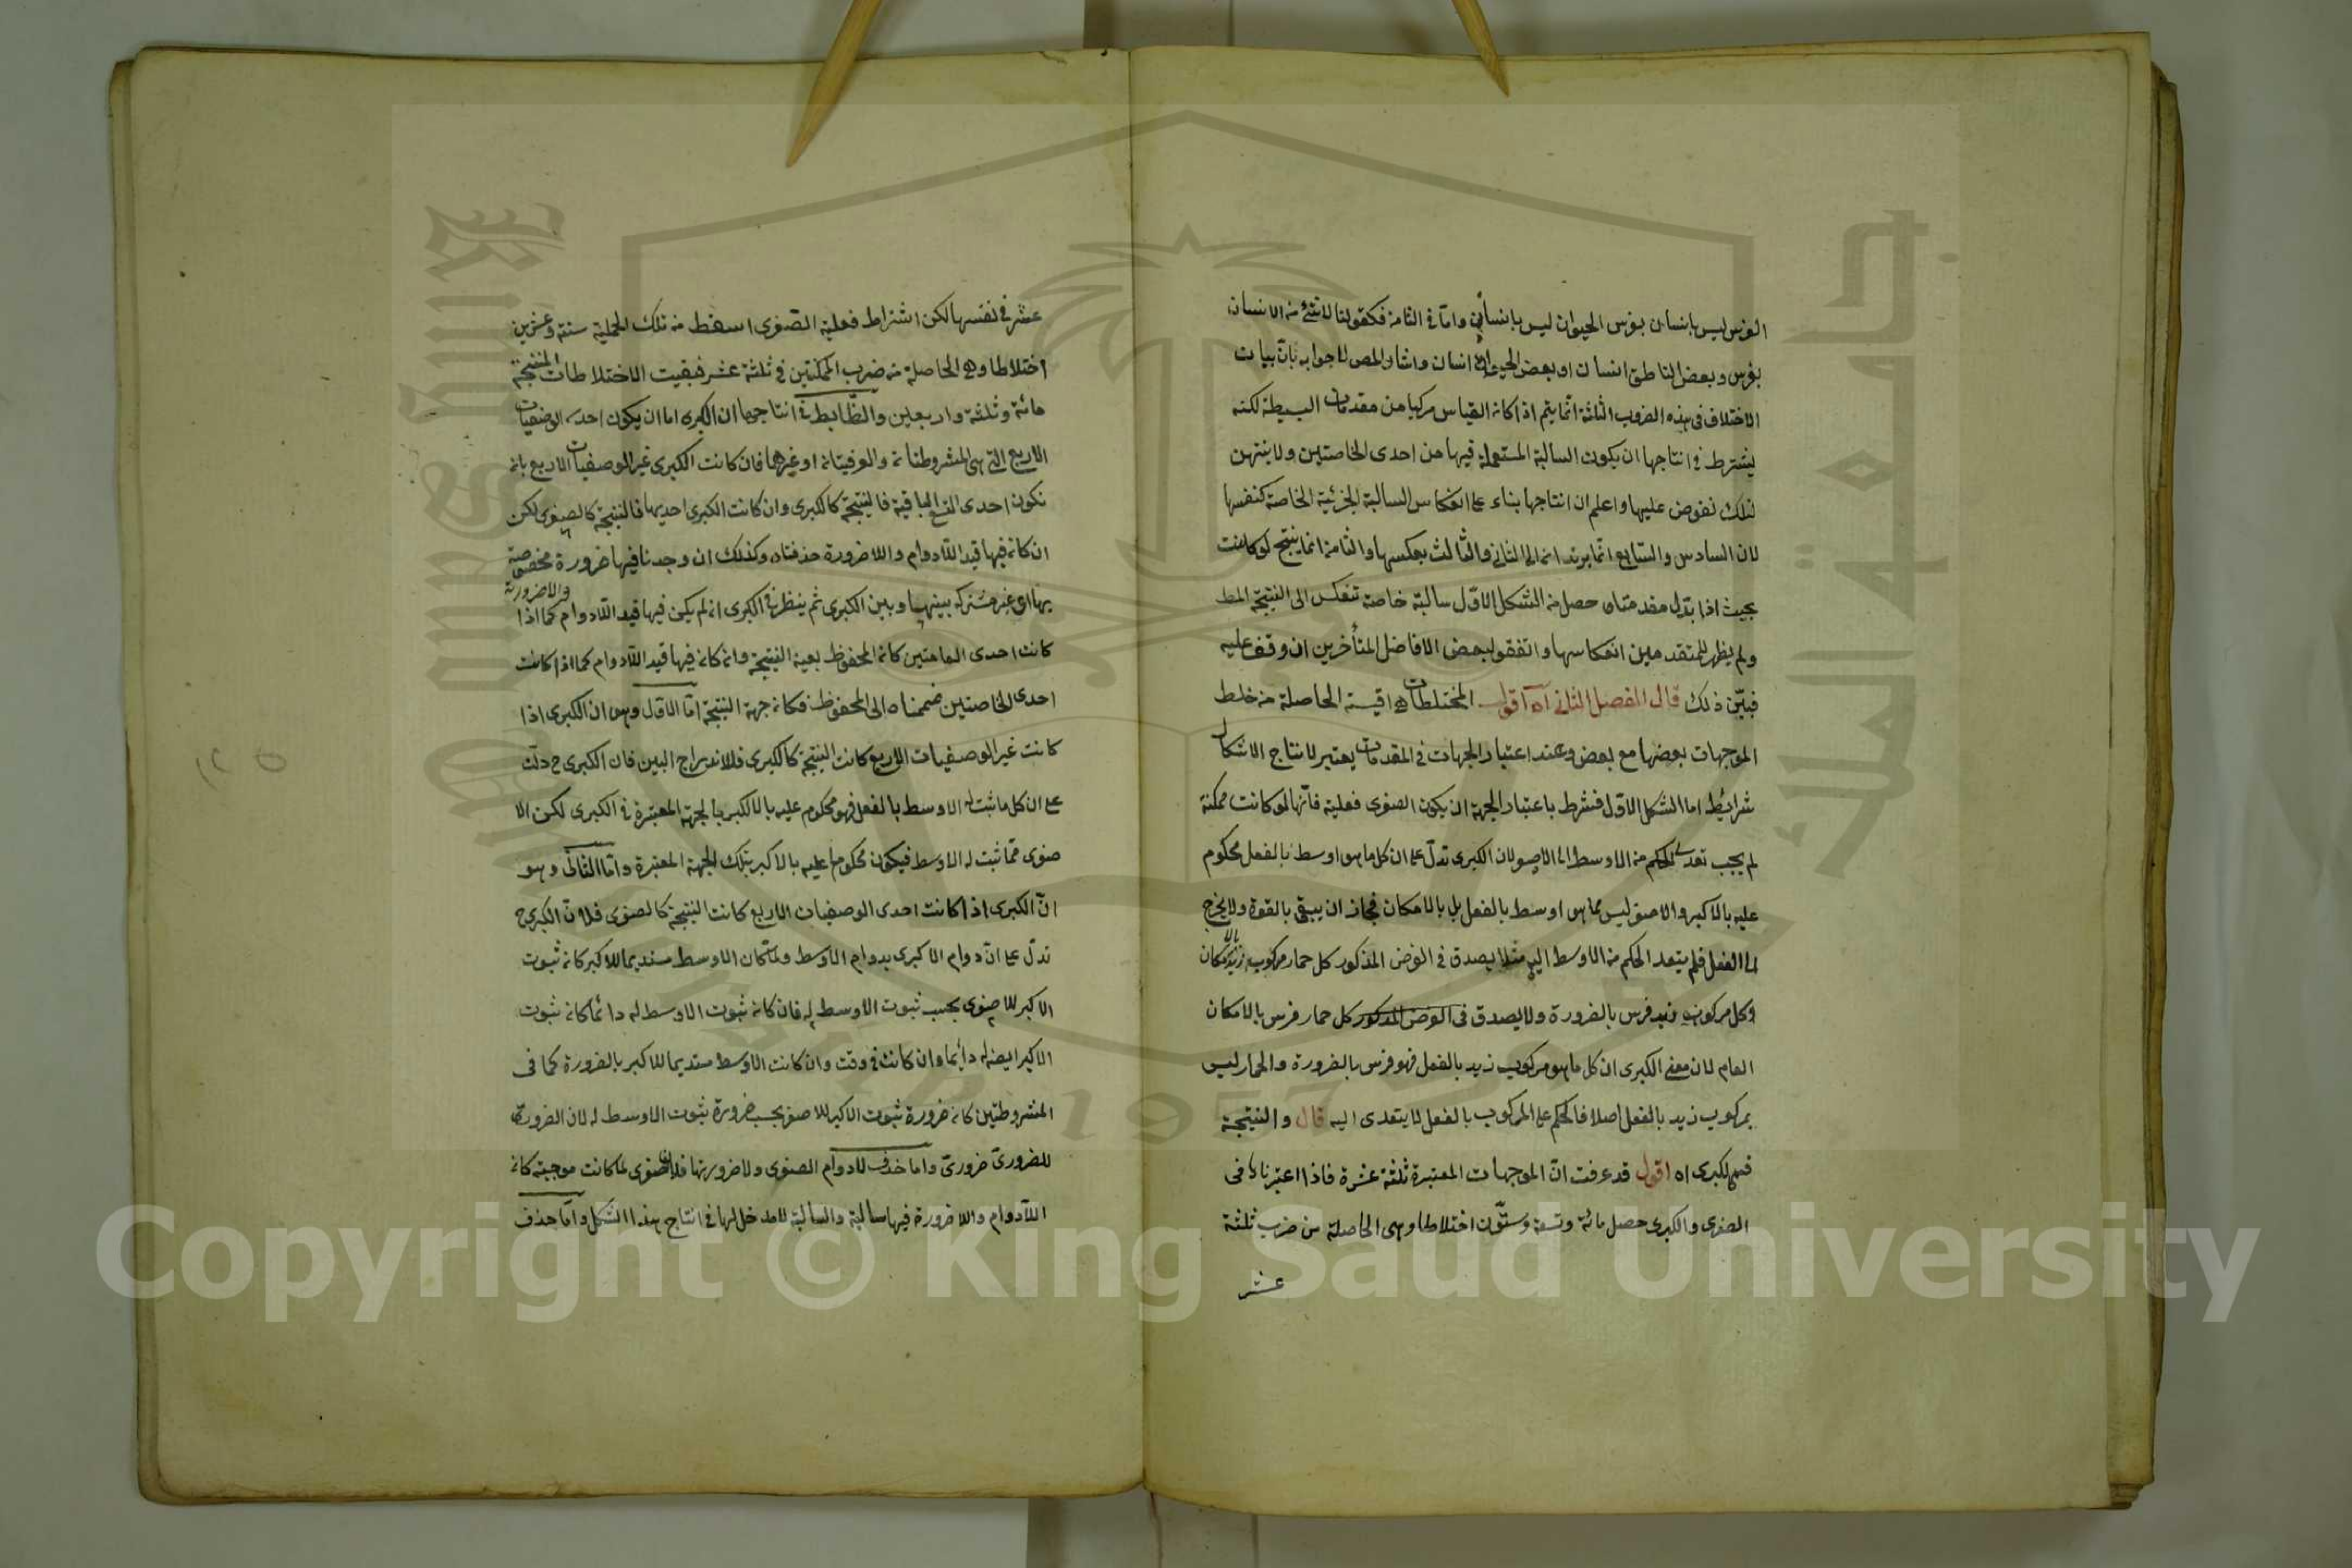 الفرس ليس بانسان بفرس الحيوان ليس بانسان واما في الثامن فكقولنا لا شئ من الانسان
بفرس وبعض الناطق انسان او بعض الحيوان انسان واشار المص لا جوابه بان بيان
الاختلاف في هذه الضروب الثلثة انما يتم اذا كان القياس مركبا من مقدمات البسيطة لكنه
يشترط في انتاجها ان يكون السالبة المستعملة فيها من احدى الخاصتين ولا ينتهض
لتلك نقوض عليها واعلم ان انتاجها بناء على انعكاس السالبة الجزئية الخاصة كنفسها
لان السادس والسابع انما يرتدان الى الثاني والثالث بعكسها والثامن انما ينتج لو كانت
بحيث اذا بدل مقدمتاه حصل من الشكل الاول سالبة خاصة تنعكس الى النتيجة المط
ولم يظهر للمتقدمين انعكاسها واتفق لبعض الافاضل المتأخرين ان وقف عليه
فبين ذلك قال الفصل الثاني اه اقول المختلطات هي اقيسة الحاصلة من خلط
الموجهات بعضها مع بعض وعند اعتبار الجهات في المقدمات يعتبر لانتاج الاشكال
شرايط اما الشكل الاول فشرط باعتبار الجهة ان يكون الصغرى فعلية فانها لو كانت ممكنة
لم يجب تعدى الحكم من الاوسط الى الاصغر لان الكبرى تدل على ان كل ما هو اوسط بالفعل محكوم
عليه بالاكبر والاصغر ليس مما هو اوسط بالفعل بل بالامكان فجاز ان يبقى بالقوة ولا يخرج
الى الفعل فلم يتعد الحكم من الاوسط اليه مثلا يصدق في الفرض المذكور كل حمار مركوب زيد بالامكان
وكل مركوب زيد فرس بالضرورة ولا يصدق في الفرض المذكور كل حمار فرس بالامكان
العام لان معنى الكبرى ان كل ما هو مركوب زيد بالفعل فهو فرس بالضرورة والحمار ليس
بمركوب زيد بالفعل اصلا فالحكم على المركوب بالفعل لا يتعدى اليه قال والنتيجة
فيه كالكبرى اه اقول قد عرفت ان الموجهات المعتبرة ثلثة عشرة فاذا اعتبرناها في
الصغرى والكبرى حصل مائة وتسعة وستون اختلاطا وهى الحاصلة من ضرب ثلثة
عشر
عشر في نفسها لكن اشتراط فعلية الصغرى اسقط من تلك الجملة ستة وعشرين
اختلاطا وهي الحاصلة من ضرب الممكنتين في ثلثة عشر فبقيت الاختلاطات المنتجة
مائة وثلثة واربعين والضابط في انتاجها ان الكبرى اما ان يكون احدى الوصفيات
الاربع التي هى المشروطتان والعرفيتان او غيرها فان كانت الكبرى غير الوصفيات الاربع بان
تكون احدى التسع الباقية فالنتيجة كالكبرى وان كانت الكبرى احديها فالنتيجة كالصغرى لكن
ان كان فيها قيد اللادوام واللاضرورة حذفناه وكذلك ان وجدنا فيها ضرورة مخصوصة
بها اى غير مشتركة بينها وبين الكبرى ثم ينظر في الكبرى ان لم يكن فيها قيد اللادوام واللاضرورة كما اذا
كانت احدى العامتين كان المحفوظ بعينه النتيجة وان كان فيها قيد اللادوام كما اذا كانت
احدى الخاصتين ضممناه الى المحفوظ فكان جهة النتيجة اما الاول وهو ان الكبرى اذا
كانت غير الوصفيات الاربع كانت النتيجة كالكبرى فلاندراج البين فان الكبرى ح دلت
على ان كل ما ثبت له الاوسط بالفعل فهو محكوم عليه بالاكبر بالجهة المعتبرة في الكبرى لكن الا
صغرى مما ثبت له الاوسط فيكون محكوما عليه بالاكبر بتلك الجهة المعتبرة واما الثاني وهو
ان الكبرى اذا كانت احدى الوصفيات الاربع كانت النتيجة كالصغرى فلان الكبرى ح
تدل على ان دوام الاكبرى بدوام الاوسط ولما كان الاوسط مستديما للاكبر كان ثبوت
الاكبر للاصغرى بحسب ثبوت الاوسط له فان كان ثبوت الاوسط له دائما كان ثبوت
الاكبر ايضا له دائما وان كانت في وقت وان كانت الاوسط مستديما للاكبر بالضرورة كما في
المشروطتين كان ضرورة ثبوت الاكبر للاصغر بحسب ضرورة ثبوت الاوسط له لان الضرورى
للضرورى ضرورى واما حذف لادوام الصغرى ولاضرورتها فلان الصغرى لما كانت موجبة كان
اللادوام واللاضرورة فيها سالبة والسالبة لا مدخل لها في انتاج هذا الشكل واما حذف
Copyright © King Saud University
1957